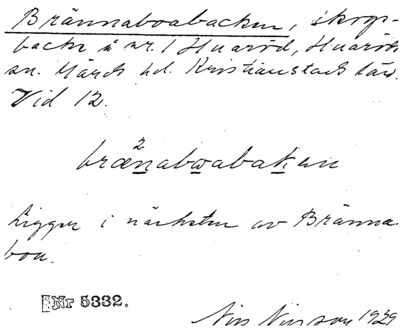 Brännaboabacken, skogs-
backe å nr. 1 Huaröd, Huaröds
sn. Gärds hd. Kristianstads län.
Vid 12.
2
brænabωabaken
Ligger i närheten av Bränna-
boa.
Nr 5332.
Nils Nilsson 1929